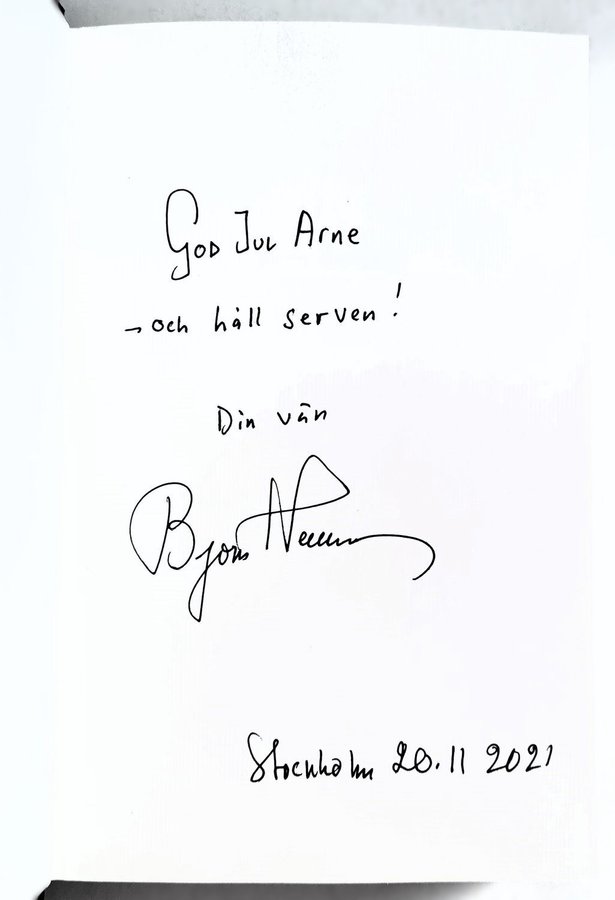 God Jul Arne
→ och håll serven!
Din vän
Björn
Stockholm 20.11 2021